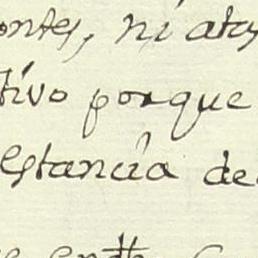 ontes, ni atas
tivo porque
estancia de